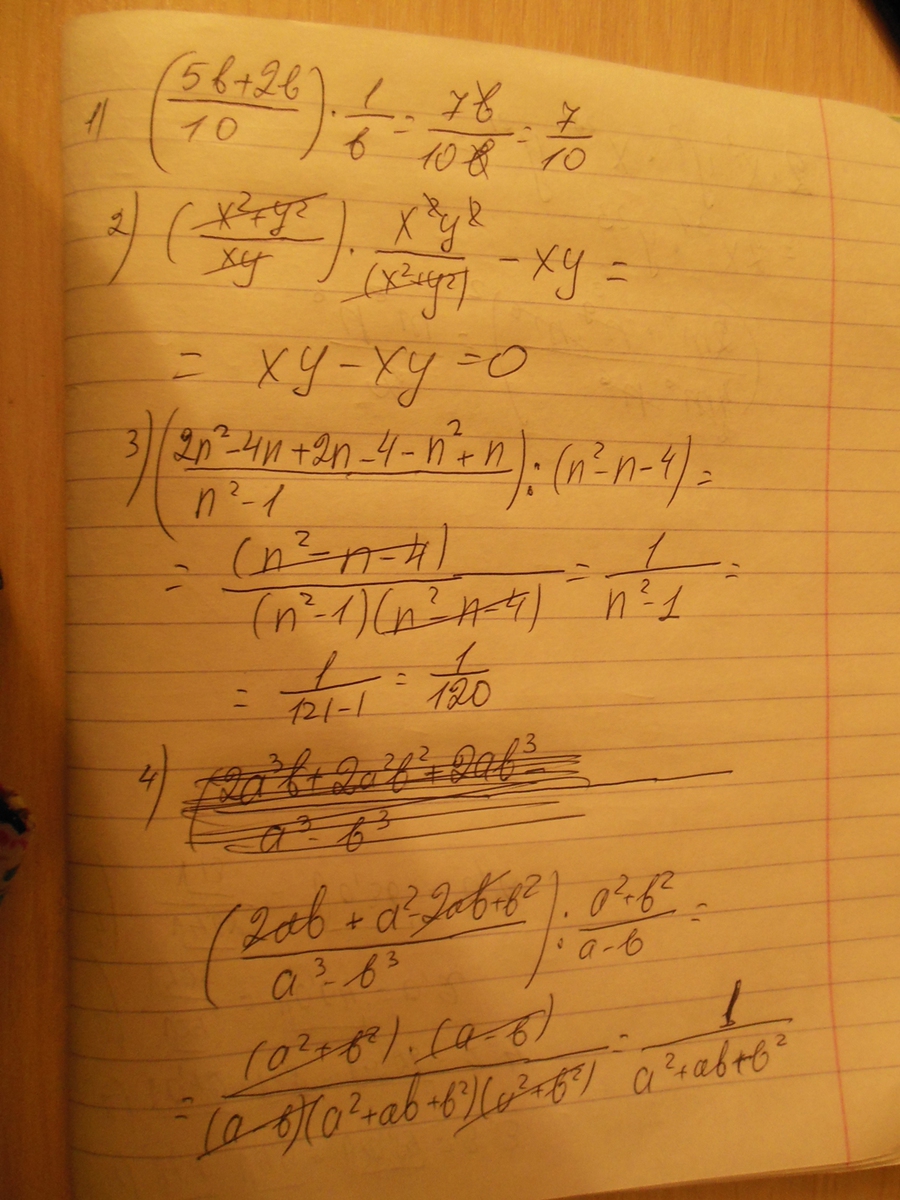 1) ((5b+2b)/10) · 1/b = 7b/10b = 7/10
2) ((x²+y²)/xy) · x²y²/(x²+y²) - xy =
= xy - xy = 0
3) ((2n²-4n+2n-4-n²+n)/(n²-1)) : (n²-n-4) =
= (n²-n-4)/((n²-1)(n²-n-4)) = 1/(n²-1) =
= 1/(121-1) = 1/120
4) (2a³b+2a²b²+2ab³-
a³-b³
((2ab+a²-2ab+b²)/(a³-b³)) : (a²+b²)/(a-b) =
= ((a²+b²)·(a-b))/((a-b)(a²+ab+b²)(a²+b²)) = 1/(a²+ab+b²)